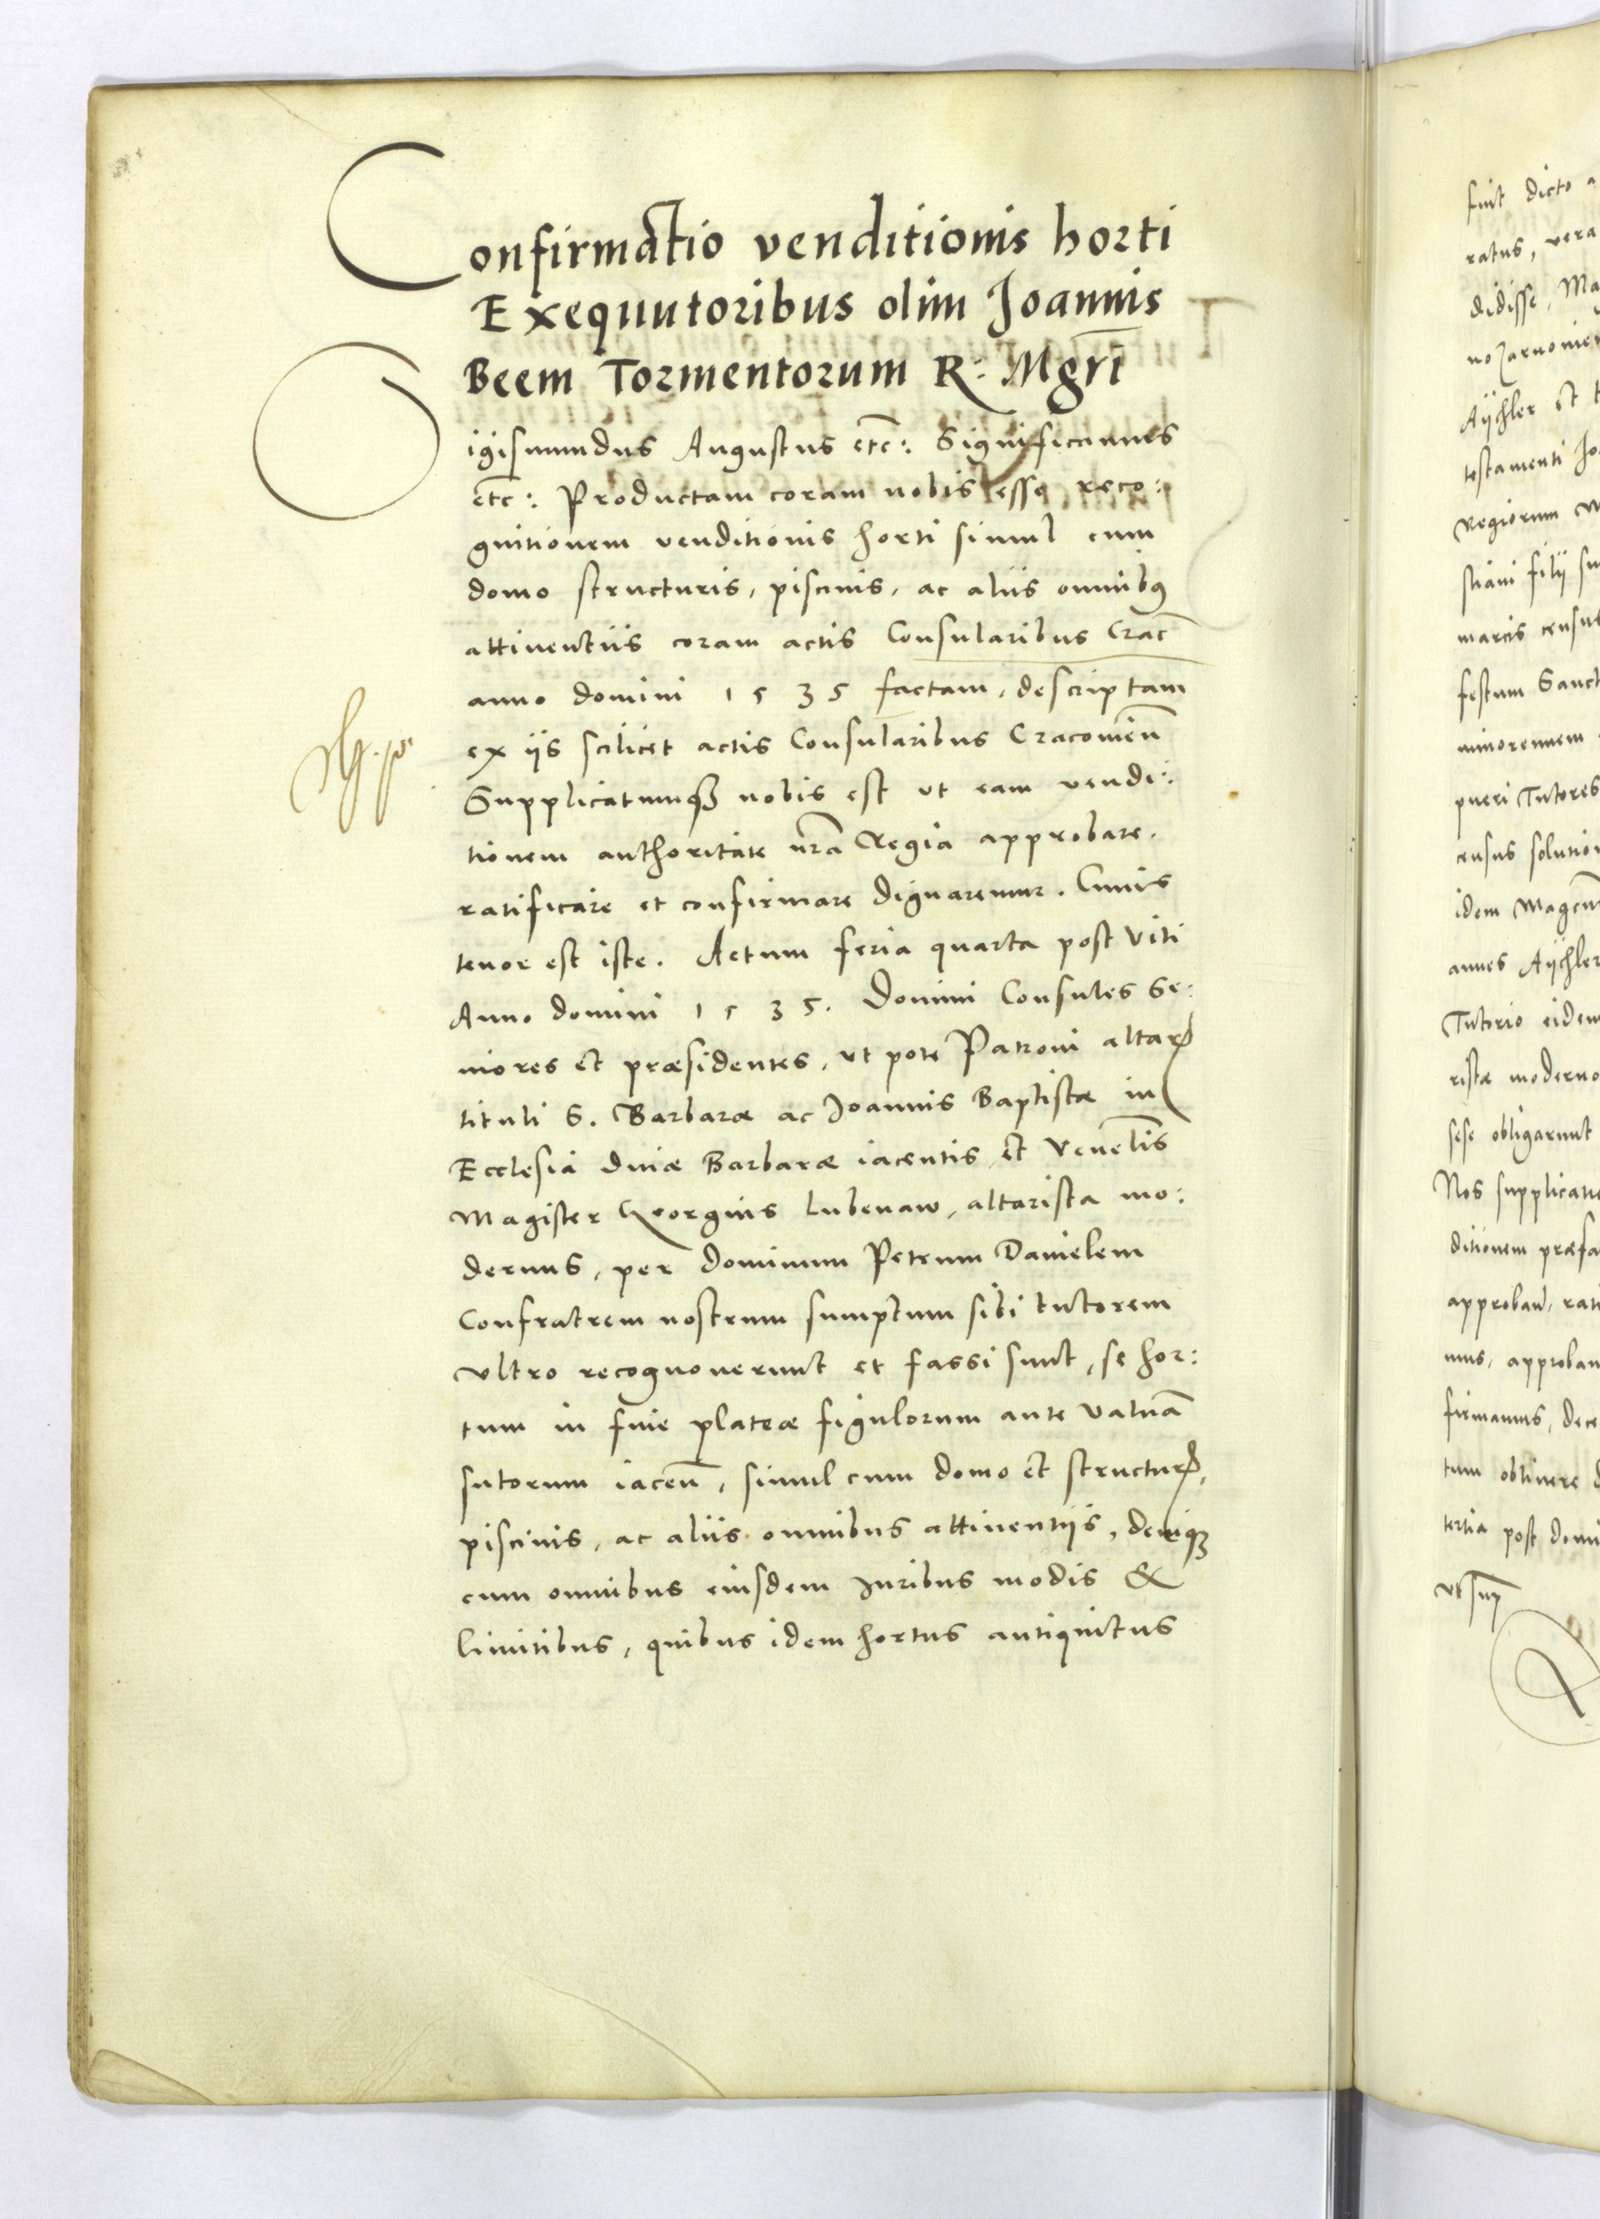 Confirmatio venditionis horti
Exequutoribus olim Joannis
Beem Tormentorum R: Mgri
Sigismundus Augustus etc: Significamus
etc: Productam coram nobis esse reco:
gnitionem venditionis horti simul cum
domo structuris, piscinis, ac aliis omnibus
attinentiis coram actis Consularibus Crac
anno domini 1535 factam, descriptam
ex iis scilicet actis Consularibus Cracovien
Supplicatumque nobis est ut eam vendi:
tionem authoritate nra Regia approbare,
ratificare et confirmare dignaremur. Cuius
tenor est iste. Actum feria quarta post Viti
Anno domini 1535. Domini Consules Se:
niores et præsidentes, ut pote Patroni altar
tituli S. Barbaræ ac Joannis Baptistæ in
Ecclesia divæ Barbaræ iacentis, et Venelis
Magister Georgius Lubenaw, altarista mo:
dernus, per Dominum Petrum Danielem
Confratrem nostrum sumptum sibi tutorem
ultro recognoverunt et fassi sunt, se hor:
tum in fine plateæ figulorum ante valvam
sutorum iacen, simul cum domo et structur,
piscinis, ac aliis omnibus attinentiis, denique
cum omnibus eiusdem Juribus modis &
limitibus, quibus idem hortus antiquitus
fuit dicto
ratus, vera
didisse, Ma
Aychler et
testamenti Jo
Regiorum
stiani filii su
marcis census
festum Sanct
minorennem
pueri Tutores
census solution
idem Magcus
annes Aychler
Tutorio eidem
ristæ moderno
sese obligarunt
Nos supplicatio
ditionem præfa
approban, rati
mus, approban
firmamus, dece
tum obtinere d
tertia post domi
ut sup